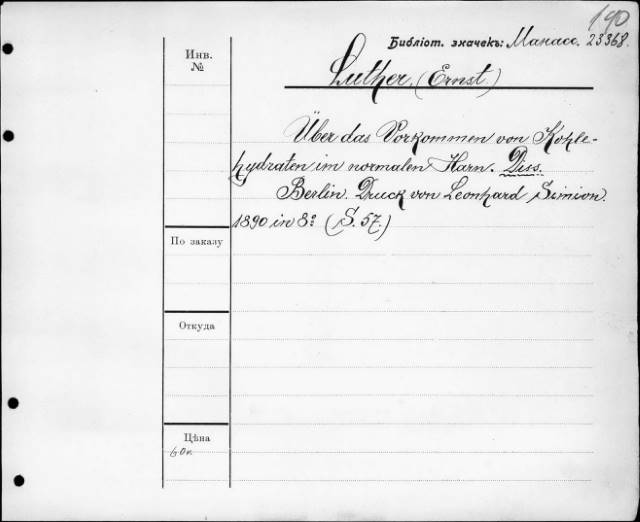 190
Библіот. значекъ: Манасс. 23368.
Инв.
№
Luther. (Ernst.)
Über das Vorkommen von Kohle-
hydraten im normalen Harn. Diss.
Berlin. Druck von Leonhard Simion.
1890 in 8º (S. 57.)
По заказу
Откуда
Цѣна
60к.